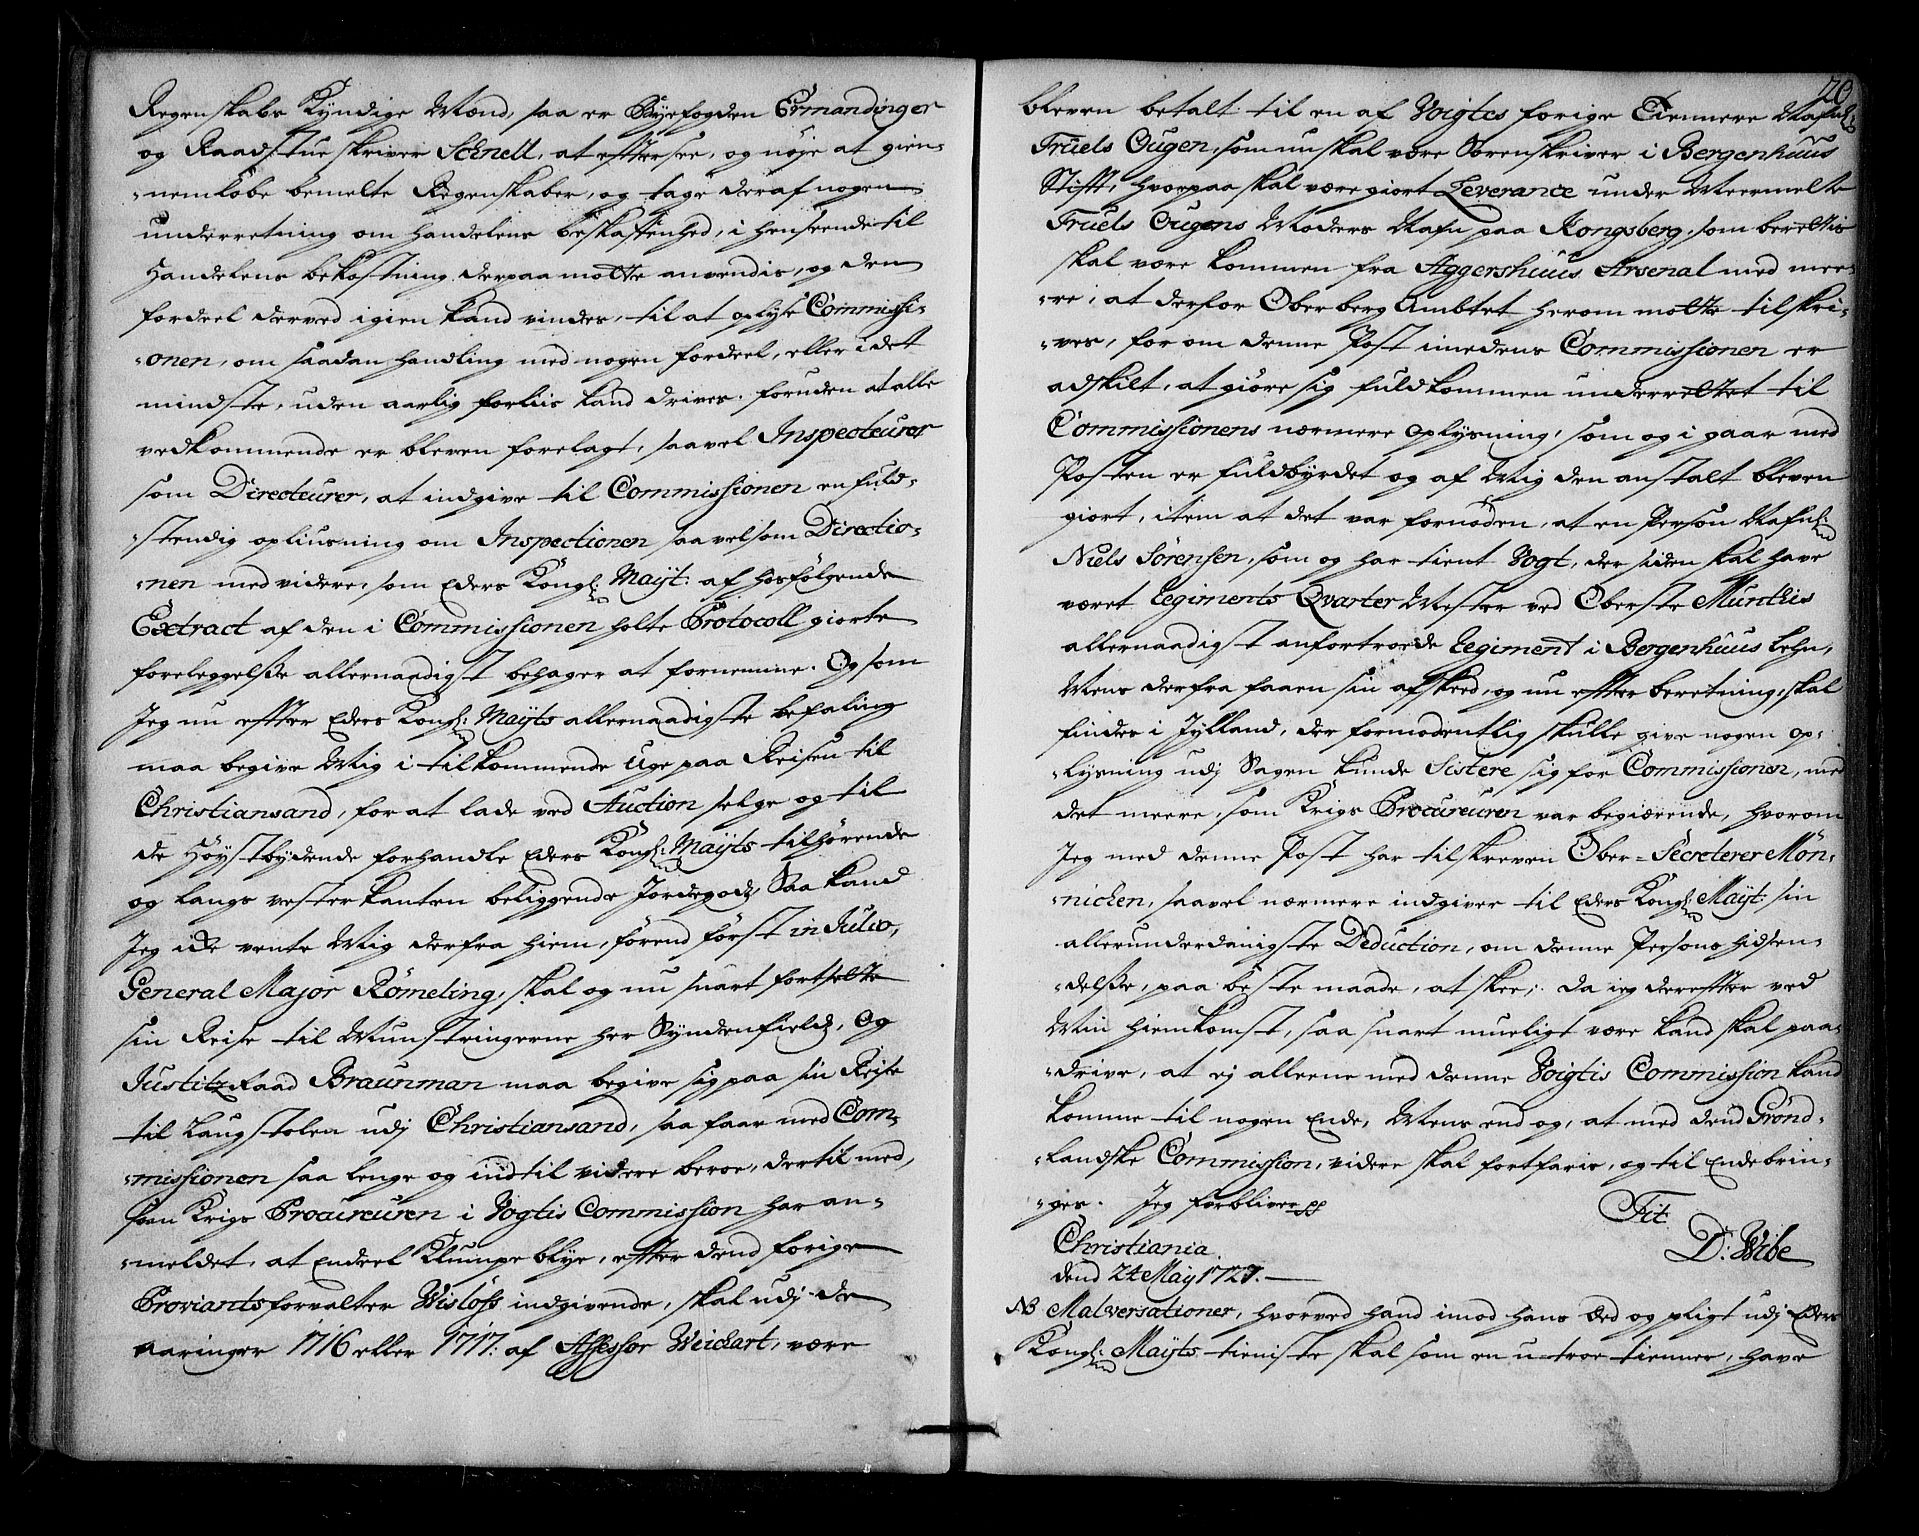 Regenskabs Kyndige Mænd, saa er Byefogden Ermandinger
og Raadstue skriver Schnell, at efftersee, og nøje at gien-
-nemløbe bemelte Regenskaber, og tage deraf nogen
underretning om Handelens beskaffenhed, i henseende til
Handelens bekostning derpaa motte anvendis, og den
fordeel derved igien kand vindes, til at oplyse Commissi-
-onen, om saadan handling med nogen fordeel, eller i det
mindste, uden aarlig forliis kand drives. foruden at alle
vedkommende er bleven forelagt, saavel Inspecteurer
som Directeurer, at indgive til Commissionen en fuld-
-stendig opliusning om Inspectionen saavelsom Directio-
-nen med videre, som Eders Kongl: Mayt: af hosfølgende
Extract af den i Commissionen holte Protocoll giorte
foreleggelsße allernaadigst behager at fornemme. Og som
Jeg nu effter Eders Kongl: Mayts allernaadigste befaling
maa begive Mig i tilkommende Uge paa Reisen til
Christiansand, for at lade ved Auction selge og til
de Høystbydende forhandle Eders Kongl: Mayts tilhørende
og langs vesterkanten beliggende Jordegods, Saa kand
Jeg icke vente Mig derfra hiem, førend først in Julio,
General Major Römeling, skal og nu snart fortsette
sin Reise til Munstringerne her Syndenfields, Og
Justitz Raad Braunman maa begive sig paa sin Reise
til Laugstolen udj Christiansand, saa faar med Com-
-missionen saa lenge og indtil videre beroe, dertil med,
som Krigs Procureuren i Vogtis Commission har an-
-meldet, at Endeel Klumpe blye, effter dend forige
Proviantsforvalter Wislöfs indgivende, skal udj de
aaringer 1716 eller 1717: af Assessor Weichart, være
20
bleven betalt til en af Voigtes forige Tiennere Nafnl:
Truels Ougen, som nu skal være Sorenskriver i Bergenhuus
Stifft, hvorpaa skal være giort Leverance under Meermelte
Truels Ougens Moders Nafn paa Kongsberg, som berettis
skal være kommen fra Aggershuus Arsenal med mee-
-re, at derfor Oberberg Ambtet herom motte tilskri-
-ves, for om denne Post imedens Commissionen er
adskilt, at giøre sig fuldkommen underrettet til
Commissionens nærmere Oplysning, som og i gaar med
Posten er fuldbyrdet og af Mig den anstalt bleven
giort, item at det var fornøden, at en Person Nafnl:
Niels Sörensen, som og har tient Vogt, der siden skal have
været Regiments Qvarter Mester ved Oberste Munthis
allernaadigst anfortroede Regiment i Bergenhuus Lehn,
Mens derfra faaen sin afskeed, og nu effter beretning, skal
findes i Jylland, der formodentlig skulle give nogen Op-
-lysning udj Sagen kunde Sistere sig for Commissionen, med
det meere, som Krigs Procureuren var begiærende, hvorom
Jeg med denne Post har tilskreven Ober-Secreterer Mön-
-nichen, saavel nærmere indgiver til Eders Kongl: Mayt: sin
allerunderdanigste Deduction, om denne Persons hidsen-
-delsße, paa beste maade, at skee; da ieg dereffter ved
Min Hiemkomst, saa snart mueligt være kand skal paa-
-drive, at ej alleene med denne Voigtis Commission kand
komme til nogen Ende, Mens end og, at med dend Grønd-
-landske Commission, videre skal fortfaris, og til Ende brin-
-ges. Jeg forbliver
Tit:
Christiania.
D: Wibe
dend 24 May 1727.
NB Malversationer, hvorved hand imod hans Eed og pligt udj Eders
Kongl: Mayts tieniste skal som en u-troe tienner, have